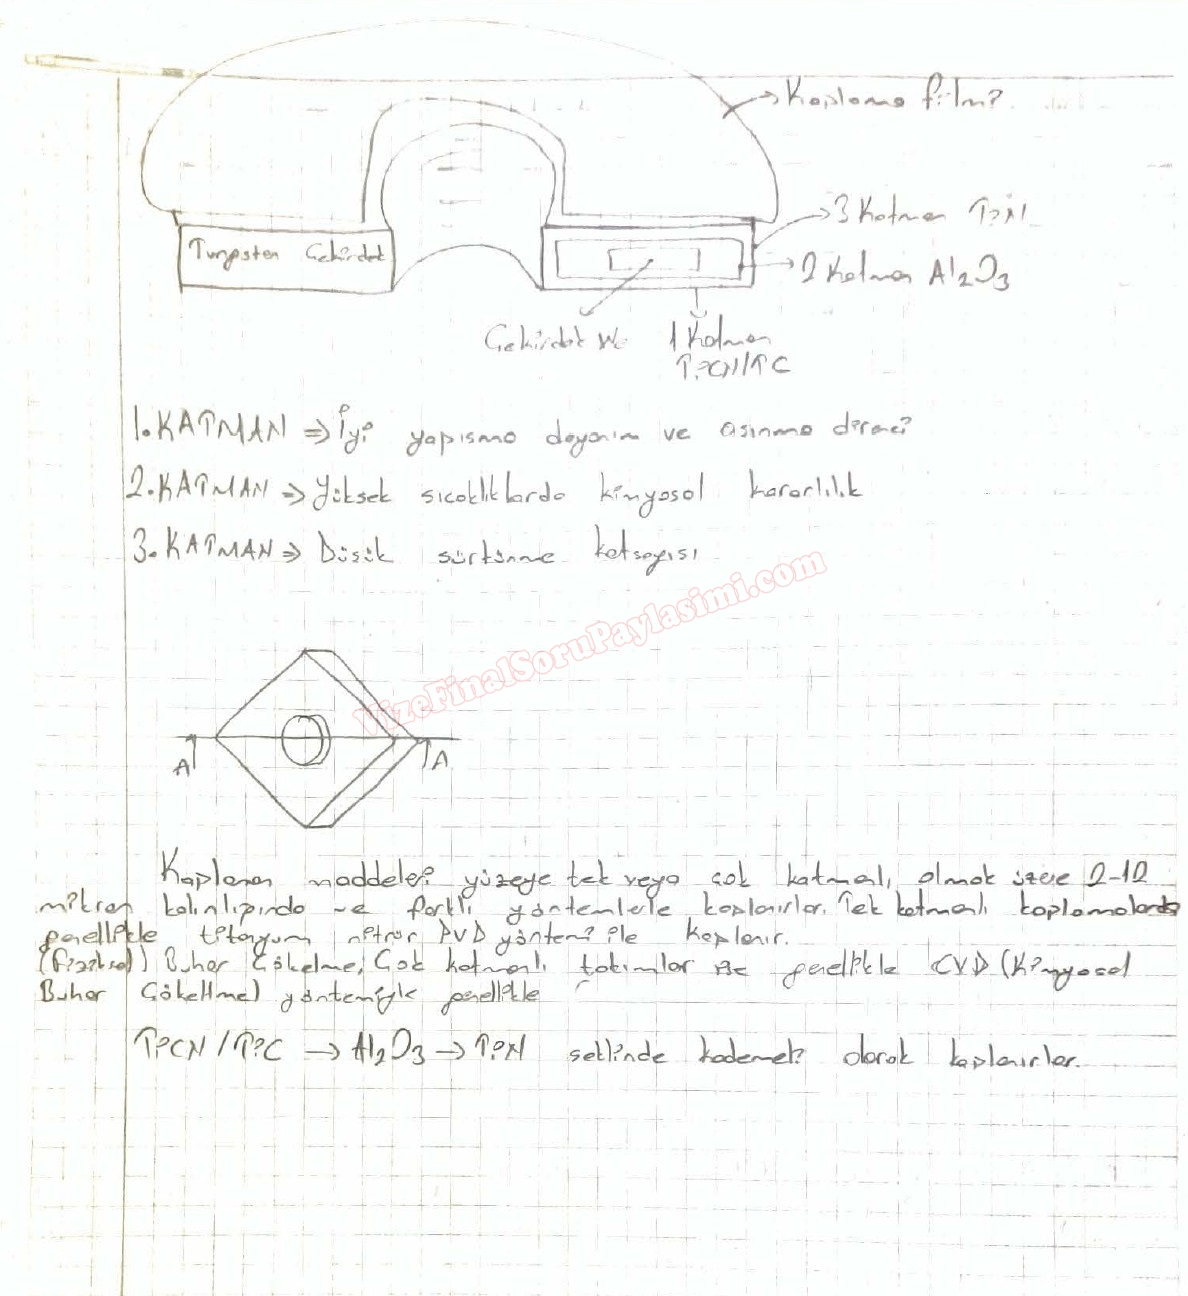 Kaplama filmi
3 Katman TiN
Tungsten Çekirdek
2 Katman Al2O3
Çekirdek Wc
1 Katman
TiCN/TiC
1.KATMAN => İyi yapışma dayanım ve aşınma direnci
2.KATMAN => Yüksek sıcaklıklarda kimyasal kararlılık
3.KATMAN => Düşük sürtünme katsayısı
VizeFinalSoruPaylasimi.com
A
A
Kaplanan maddeler yüzeye tek veya çok katmanlı, olmak üzere 2-12
mikron kalınlığında ve farklı yöntemlerle kaplanırlar. Tek katmanlı kaplamalarda
genellikle titanyum nitrür PVD yöntemi ile kaplanır.
(Fiziksel) Buhar Çökelme, Çok katmanlı takımlar ise genellikle CVD (Kimyasal
Buhar Çökeltme) yöntemiyle genellikle
TiCN/TiC → Al2O3 → TiN şeklinde kademeli olarak kaplanırlar.